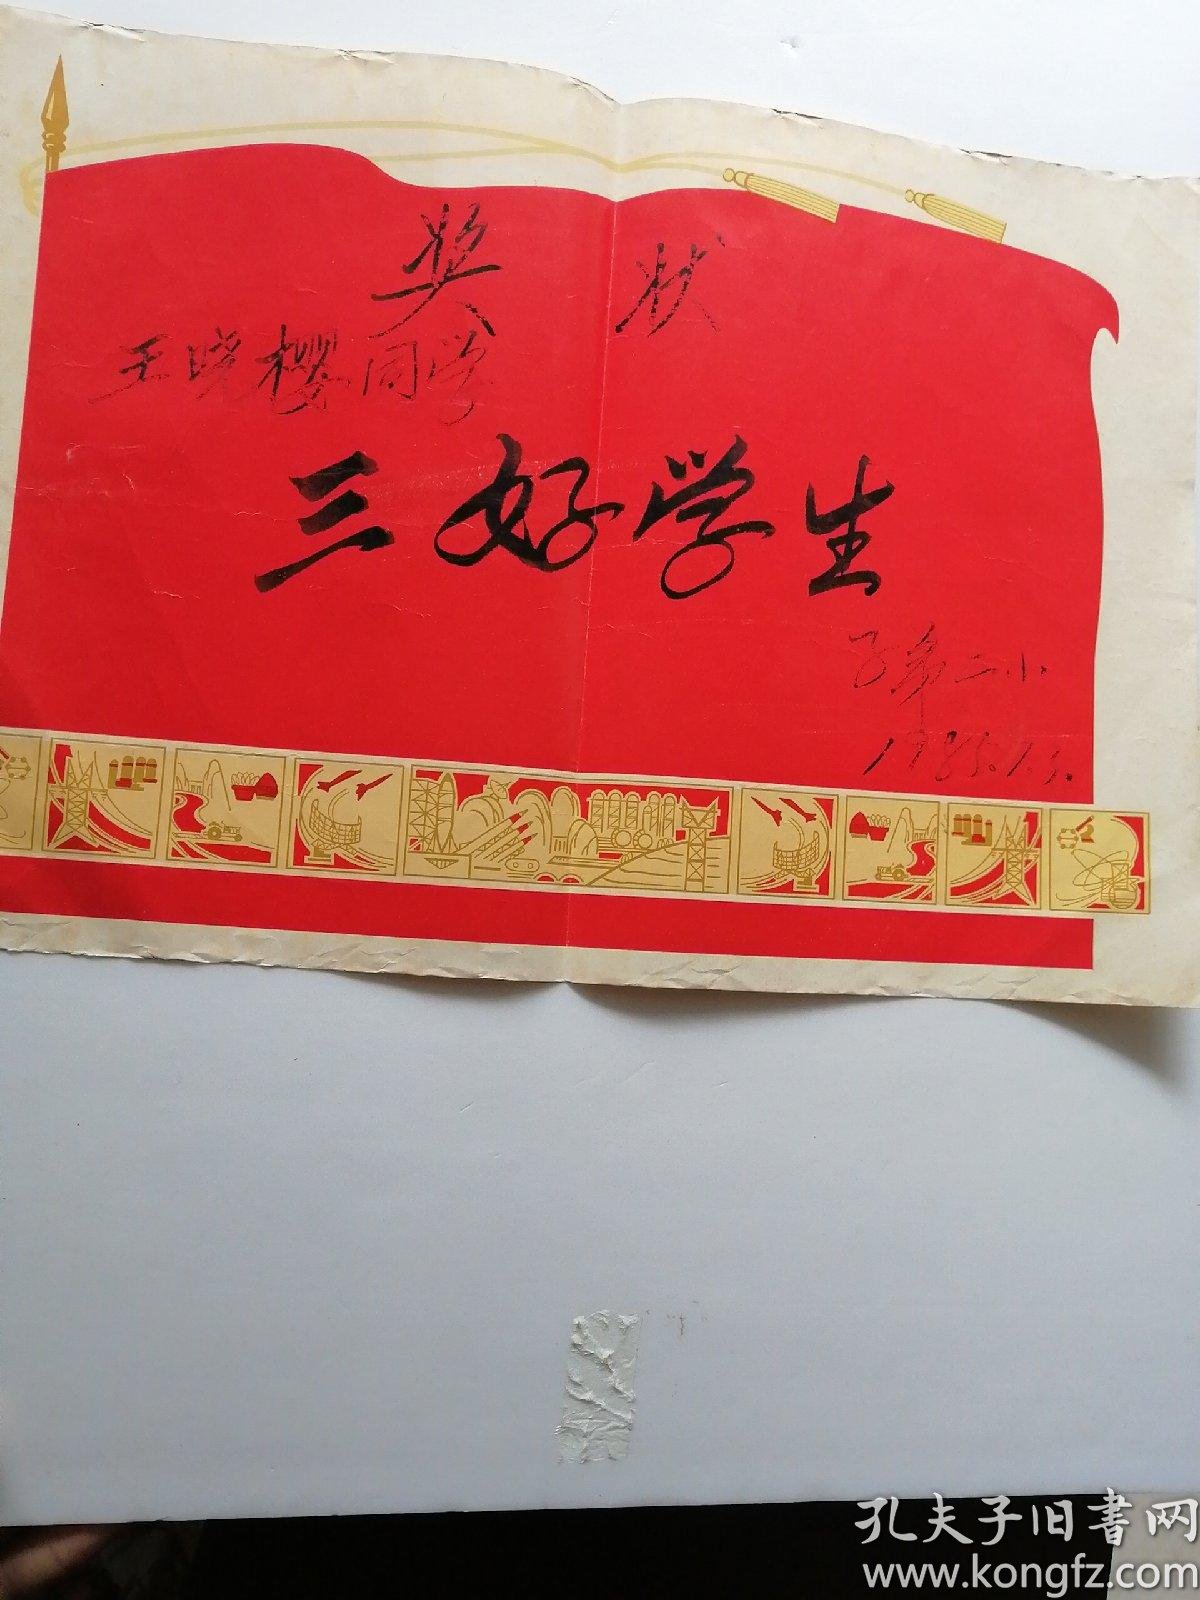 奖状
王晓樱同学
三好学生
子弟二小
1985.1.3.
孔夫子旧书网
www.kongfz.com